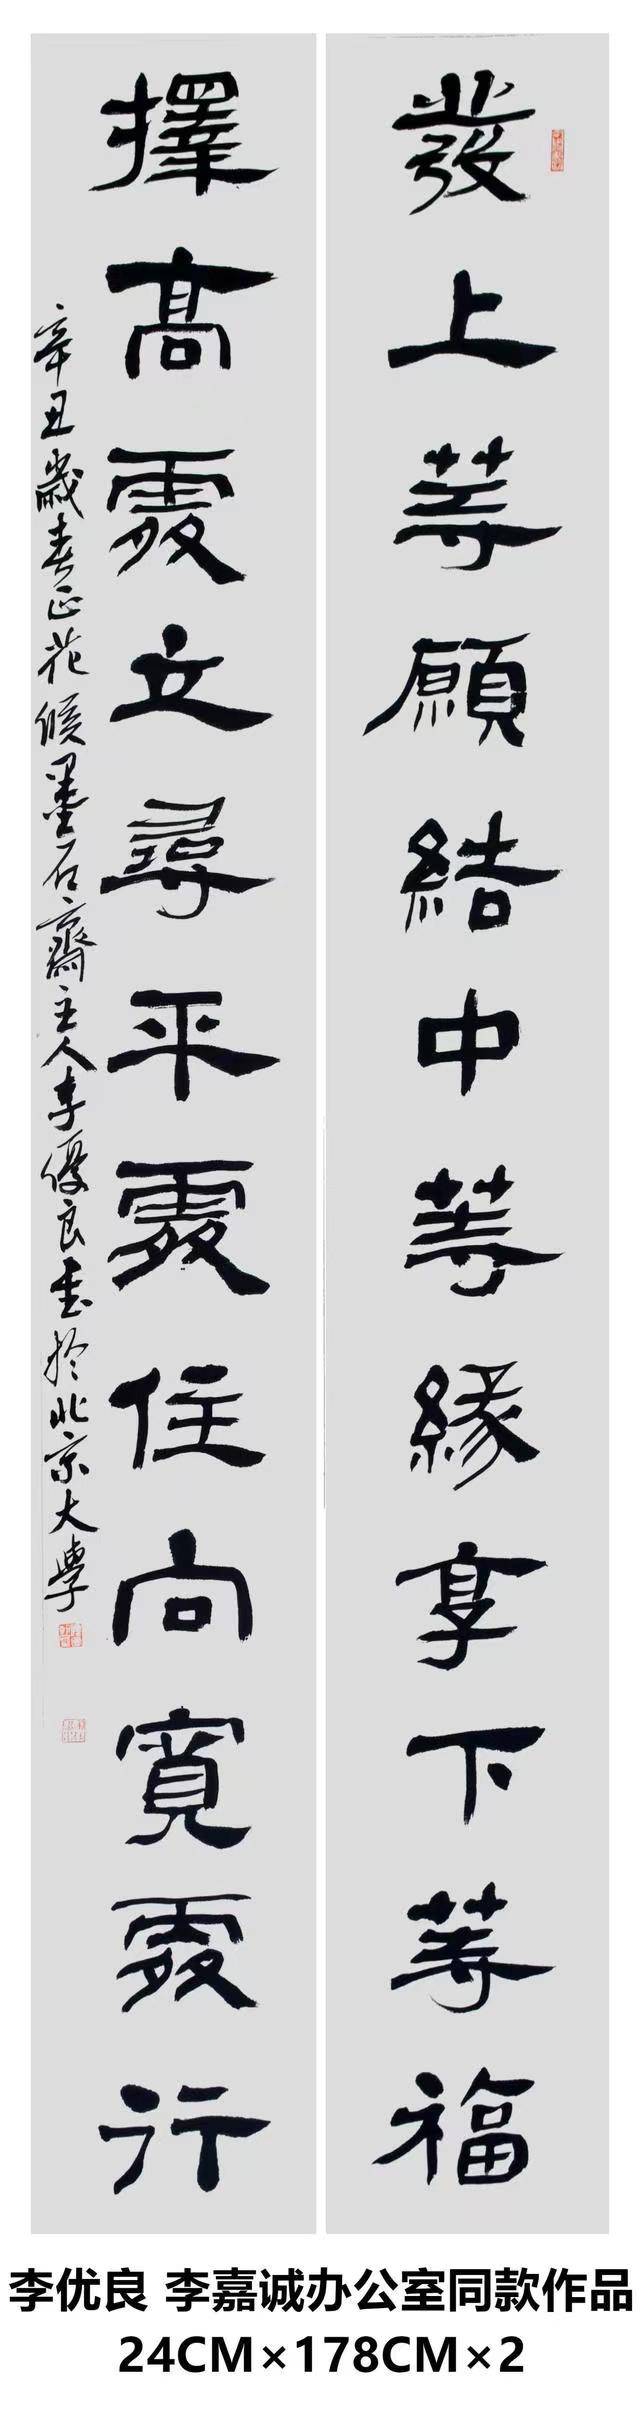 發上等願結中等緣享下等福
擇高處立尋平處住向寬處行
辛丑歲春正花候墨石齋主人李優良書於北京大學
李优良 李嘉诚办公室同款作品
24CM×178CM×2